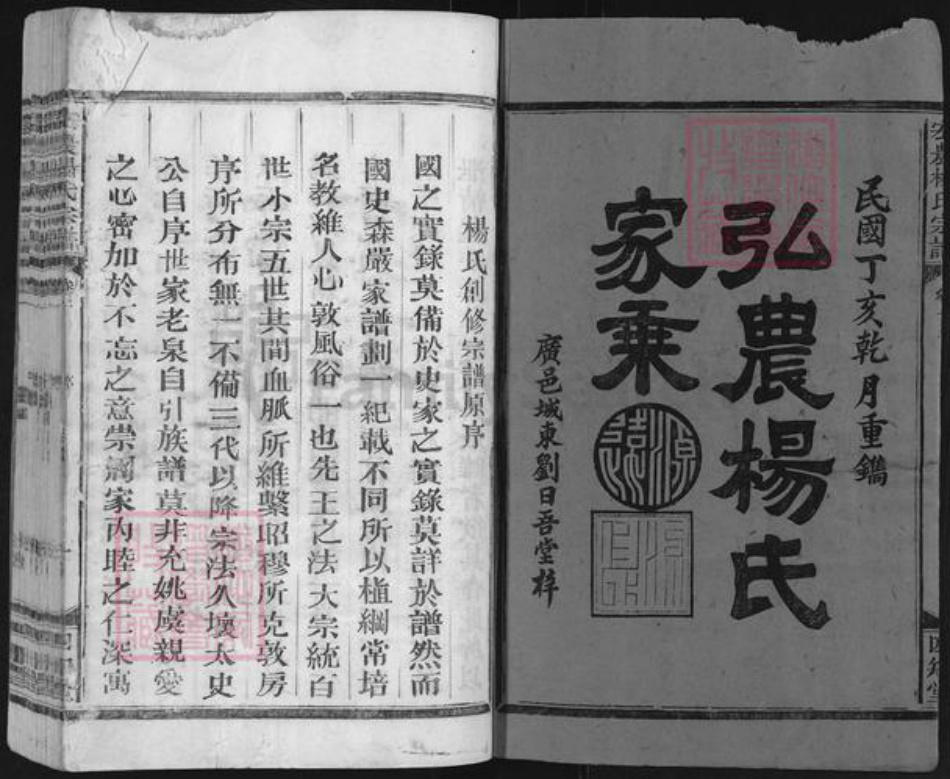 民國丁亥乾月重鐫
弘農楊氏
家乘
廣邑城東劉日吾堂梓
楊氏創修宗譜原序
國之實錄莫備於史家之實錄莫詳於譜然而
國史森嚴家譜劃一紀載不同所以植綱常培
名教維人心敦風俗一也先王之法大宗統百
世小宗五世其間血脈所維繫昭穆所克敦房
序所分布無一不備三代以降宗法久壞太史
公自序世家老泉自引族譜莫非充姚虞親愛
之心密加於不忘之意崇淵家內睦之仁深寓